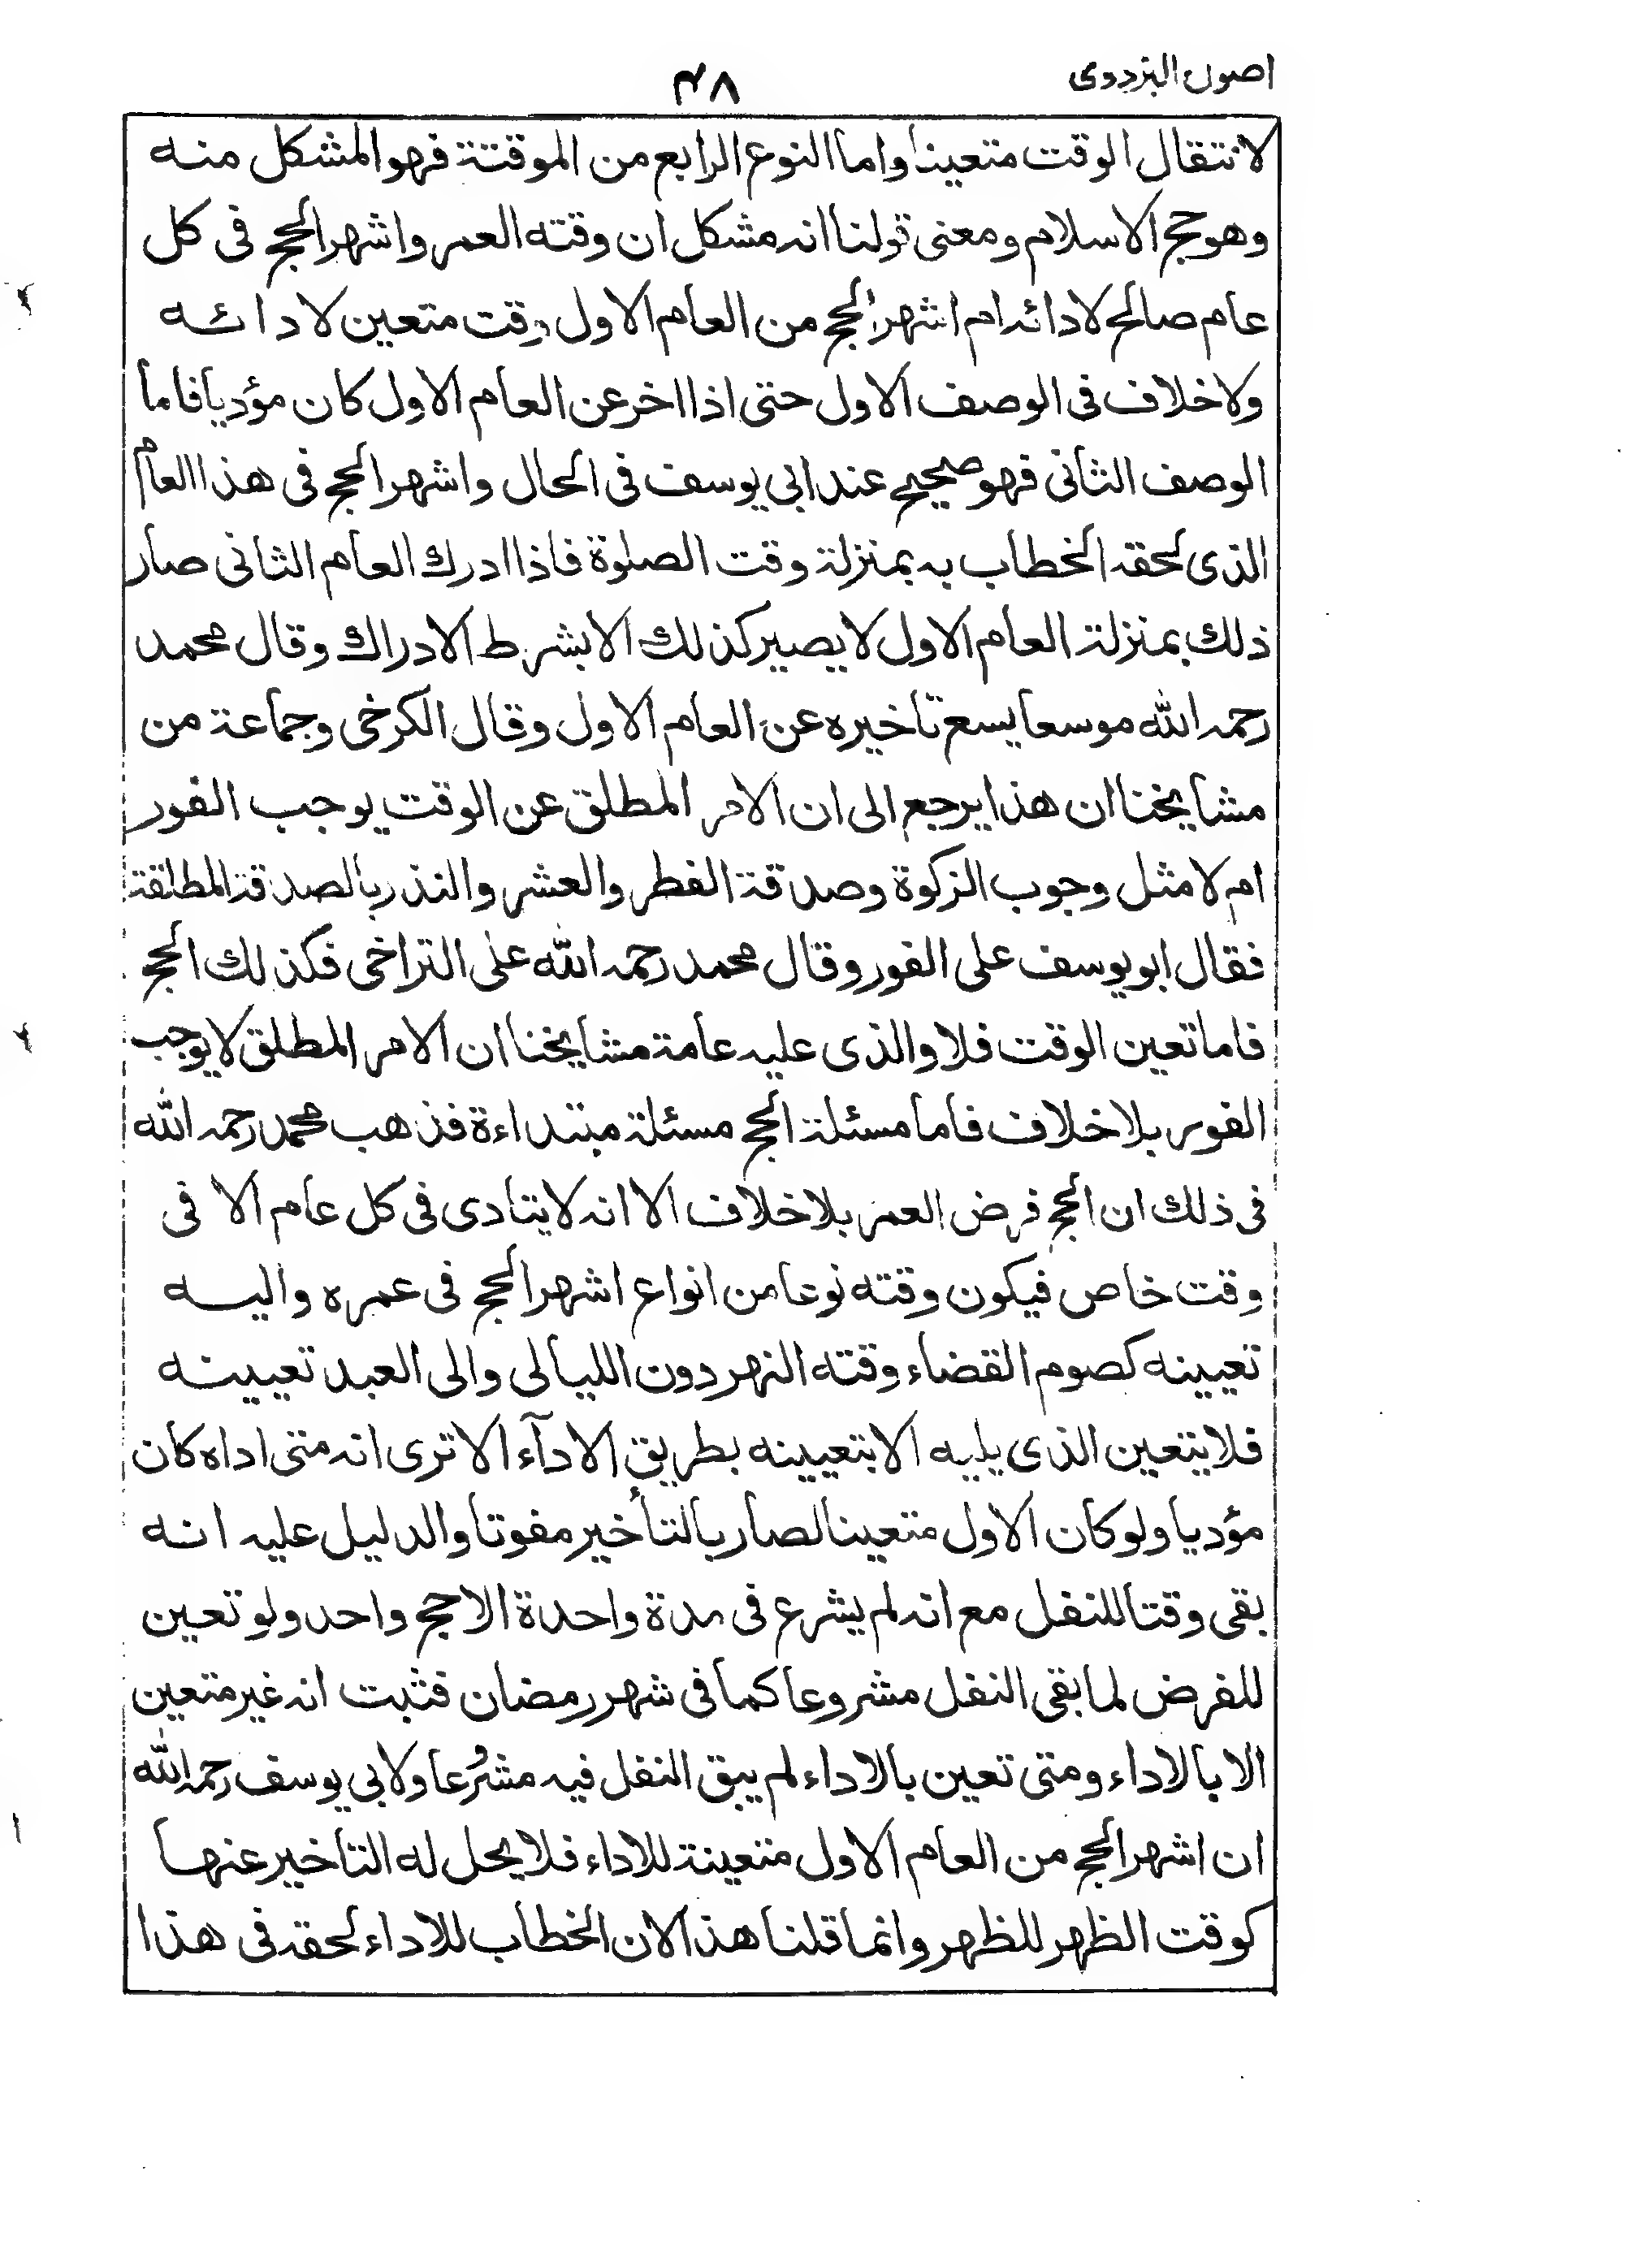 اصول البزدوى
٤٨
لانتقال الوقت متعينا واما النوع الرابع من الموقتة فهو المشكل منه
وهو حج الاسلام ومعنى قولنا انه مشكل ان وقته العمر واشهر الحج فى كل
عام صالح لادائه ام اشهر الحج من العام الاول وقت متعين لادائه
ولا خلاف فى الوصف الاول حتى اذا اخر عن العام الاول كان مؤديا فاما
الوصف الثانى فهو صحيح عند ابي يوسف فى الحال واشهر الحج فى هذا العام
الذى لحقه الخطاب به بمنزلة وقت الصلوة فاذا ادرك العام الثانى صار
ذلك بمنزلة العام الاول لا يصير كذلك الا بشرط الادراك وقال محمد
رحمه الله موسعا يسع تاخيره عن العام الاول وقال الكرخى وجماعة من
مشايخنا ان هذا يرجع الى ان الامر المطلق عن الوقت يوجب الفور
ام لا مثل وجوب الزكوة وصدقة الفطر والعشر والنذر بالصدقة المطلقة
فقال ابو يوسف على الفور وقال محمد رحمه الله على التراخى فكذلك الحج
فاما تعين الوقت فلا والذى عليه عامة مشايخنا ان الامر المطلق لا يوجب
الفور بلا خلاف فاما مسئلة الحج مسئلة مبتداءة فذهب محمد رحمه الله
فى ذلك ان الحج فرض العمر بلا خلاف الا انه لا يتادى فى كل عام الا فى
وقت خاص فيكون وقته نوعا من انواع اشهر الحج فى عمره واليه
تعيينه كصوم القضاء وقته النهر دون الليالى والى العبد تعيينه
فلا يتعين الذى يليه الا بتعيينه بطريق الادآء الا ترى انه متى اداه كان
مؤديا ولو كان الاول متعينا لصار بالتأخير مفوتا والدليل عليه انه
بقى وقتا للنفل مع انه لم يشرع فى مدة واحدة الا حج واحد ولو تعين
للفرض لما بقى النفل مشروعا كما فى شهر رمضان فثبت انه غير متعين
الا بالاداء ومتى تعين بالاداء لم يبق النفل فيه مشروعا ولابي يوسف رحمه الله
ان اشهر الحج من العام الاول متعينة للاداء فلا يحل له التاخير عنها
كوقت الظهر للظهر وانما قلنا هذا لان الخطاب للاداء لحقه فى هذا